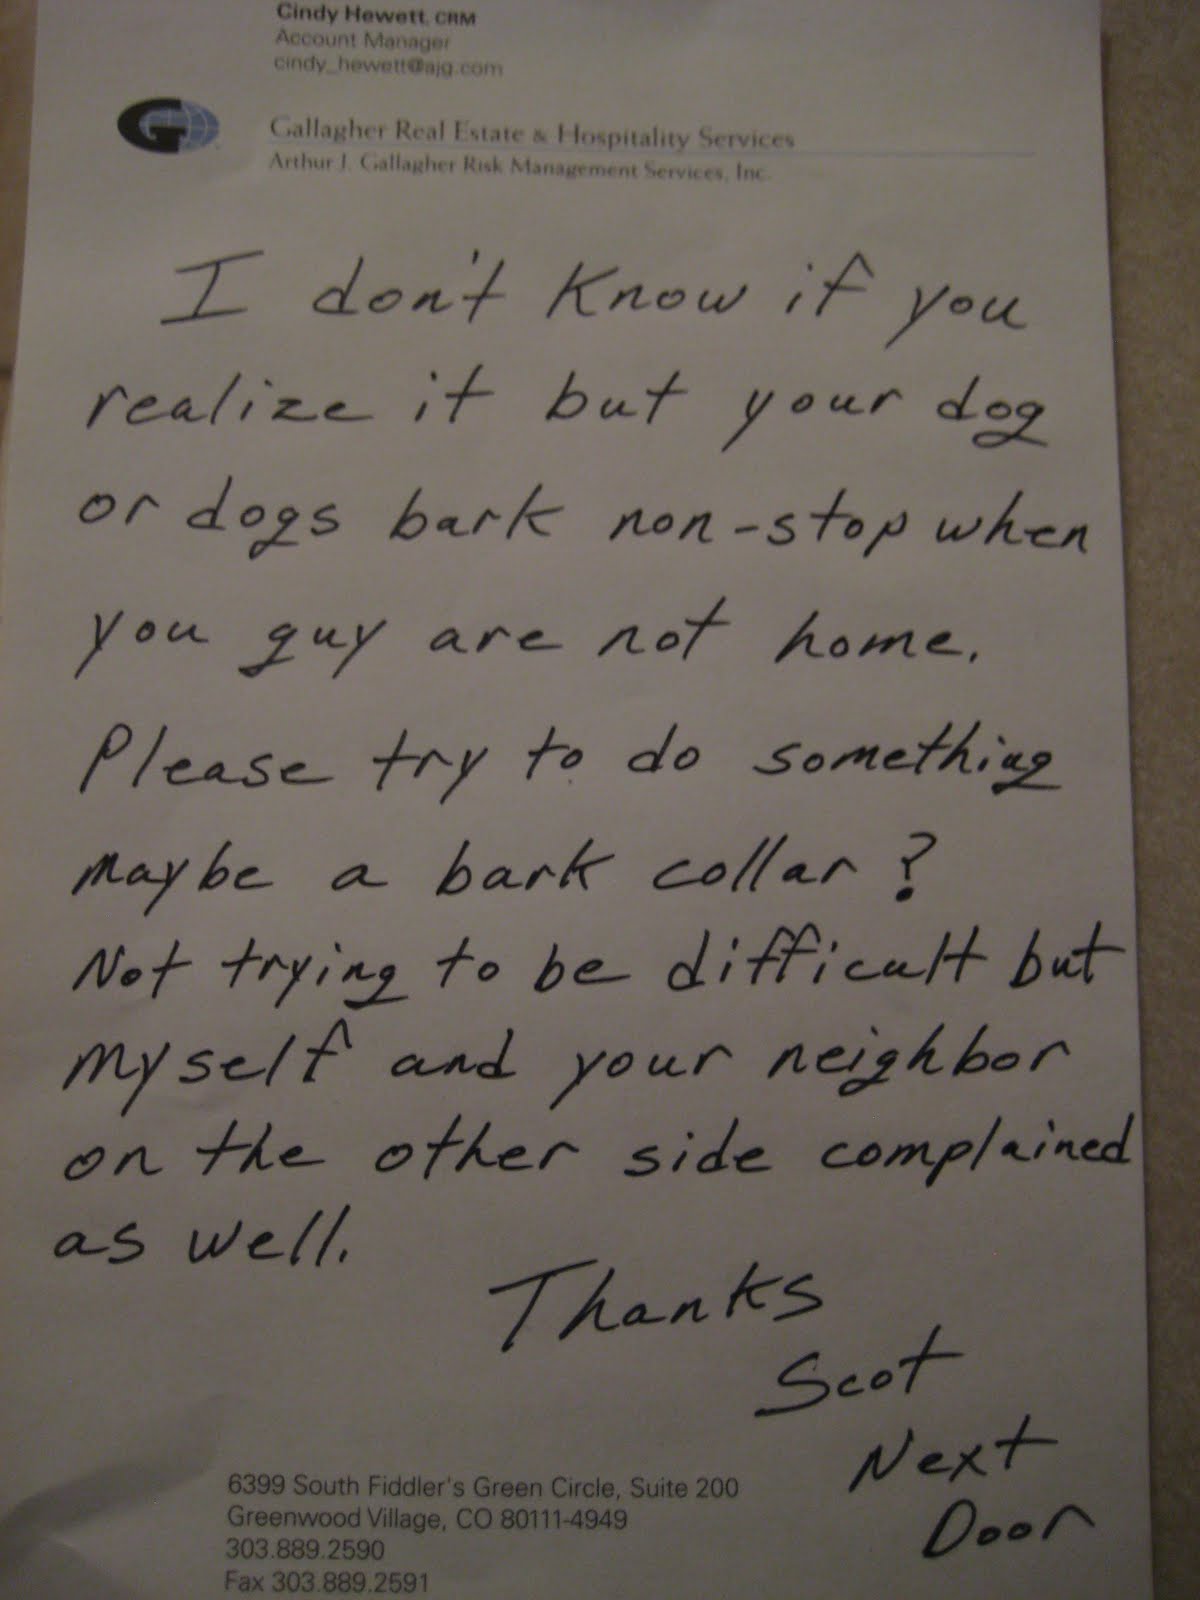 Cindy Hewett, CRM
Account Manager
cindy_hewett@ajg.com
G
Gallagher Real Estate & Hospitality Services
Arthur J. Gallagher Risk Management Services, Inc.
I don't know if you
realize it but your dog
or dogs bark non-stop when
you guy are not home.
Please try to do something
maybe a bark collar?
Not trying to be difficult but
myself and your neighbor
on the other side complained
as well.
Thanks
Scot
Next
Door
6399 South Fiddler's Green Circle, Suite 200
Greenwood Village, CO 80111-4949
303.889.2590
Fax 303.889.2591